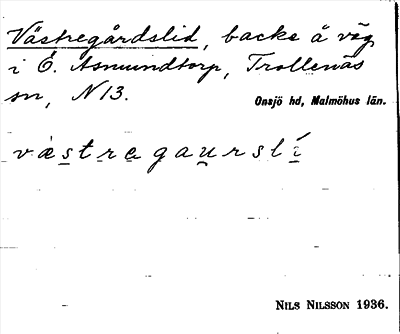 Västregårdslid, backe å väg
i Ö. Asmundtorp, Trollenäs
sn, N 13.
Onsjö hd, Malmöhus län.
væstregaurslí
NILS NILSSON 1936.